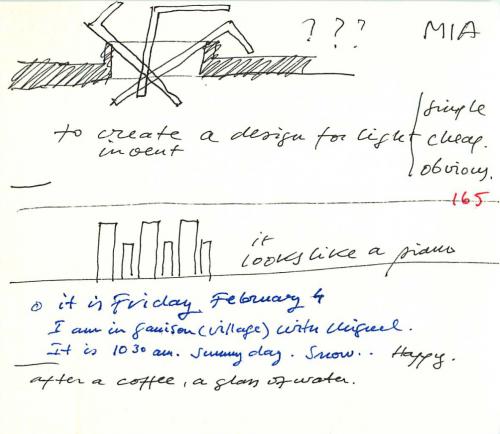 ? ? ?
MIA
to create a design for light
invent
simple
cheap.
obvious.
165
it
looks like a piano
it is Friday February 4
I am in Garrison (village) with Miguel.
It is 10 30 am. Sunny day. Snow.. Happy.
after a coffee, a glass of water.